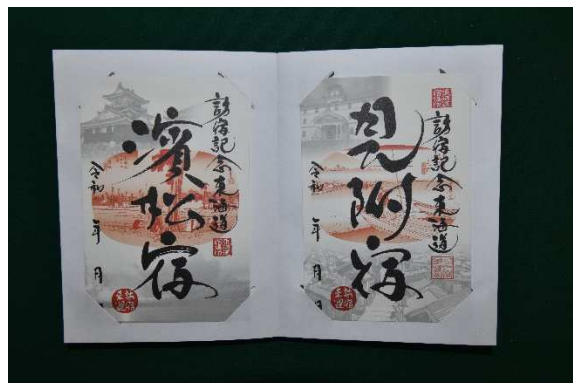 訪宿記念東海道
見附宿
令和 年 月 日
訪宿記念東海道
濱松宿
令和 年 月 日